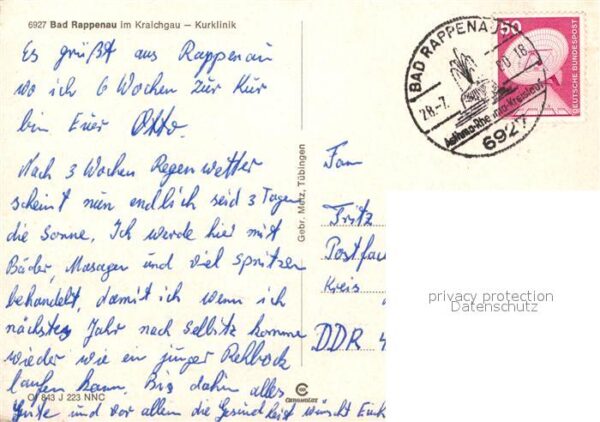 6927 Bad Rappenau im Kraichgau – Kurklinik
Es grüßt aus Rappenau
wo ich 6 Wochen zur Kur
bin Euer Otto.
Nach 3 Wochen Regenwetter
scheint nun endlich seid 3 Tagen
die Sonne. Ich werde hier mit
Bäder, Masagen und viel spritzen
behandelt, damit ich wenn ich
nächstes Jahr nach Selbitz komme
wieder wie ein junger Rehbock
laufen kann. Bis dahin alles
Gute und vor allem die Gesundheit wünscht Euch
Of 843 J 223 NNC
Gebr. Metz, Tübingen
BAD RAPPENAU
28.-7.
-18
Asthma-Rheuma-Kreislauf
6927
50
DEUTSCHE BUNDESPOST
Fam
Fritz
Postfach
Kreis
DDR
privacy protection
Datenschutz